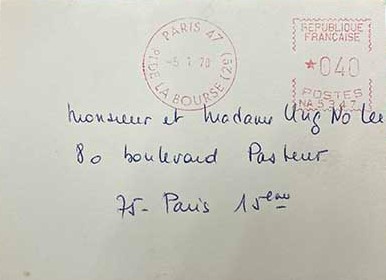 PARIS 47 (52)
-5 1 70
Pl DE LA BOURSE
REPUBLIQUE
FRANÇAISE
*040
POSTES
NA 5347
Monsieur et Madame Ung No Lee
80 boulevard Pasteur
75- Paris 15ème